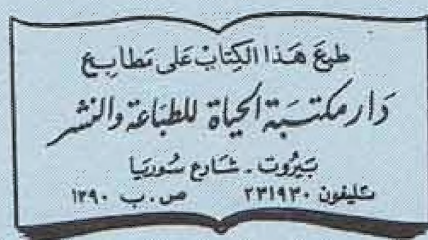 طبع هَذا الكِتابْ عَلى مَطابع
دَار مكتبَة الحياة للطبَاعَة والنشر
بَيروت - شارع سُوريَا
تليفون ٢٣١٩٣٠ ص.ب ١٢٩٠